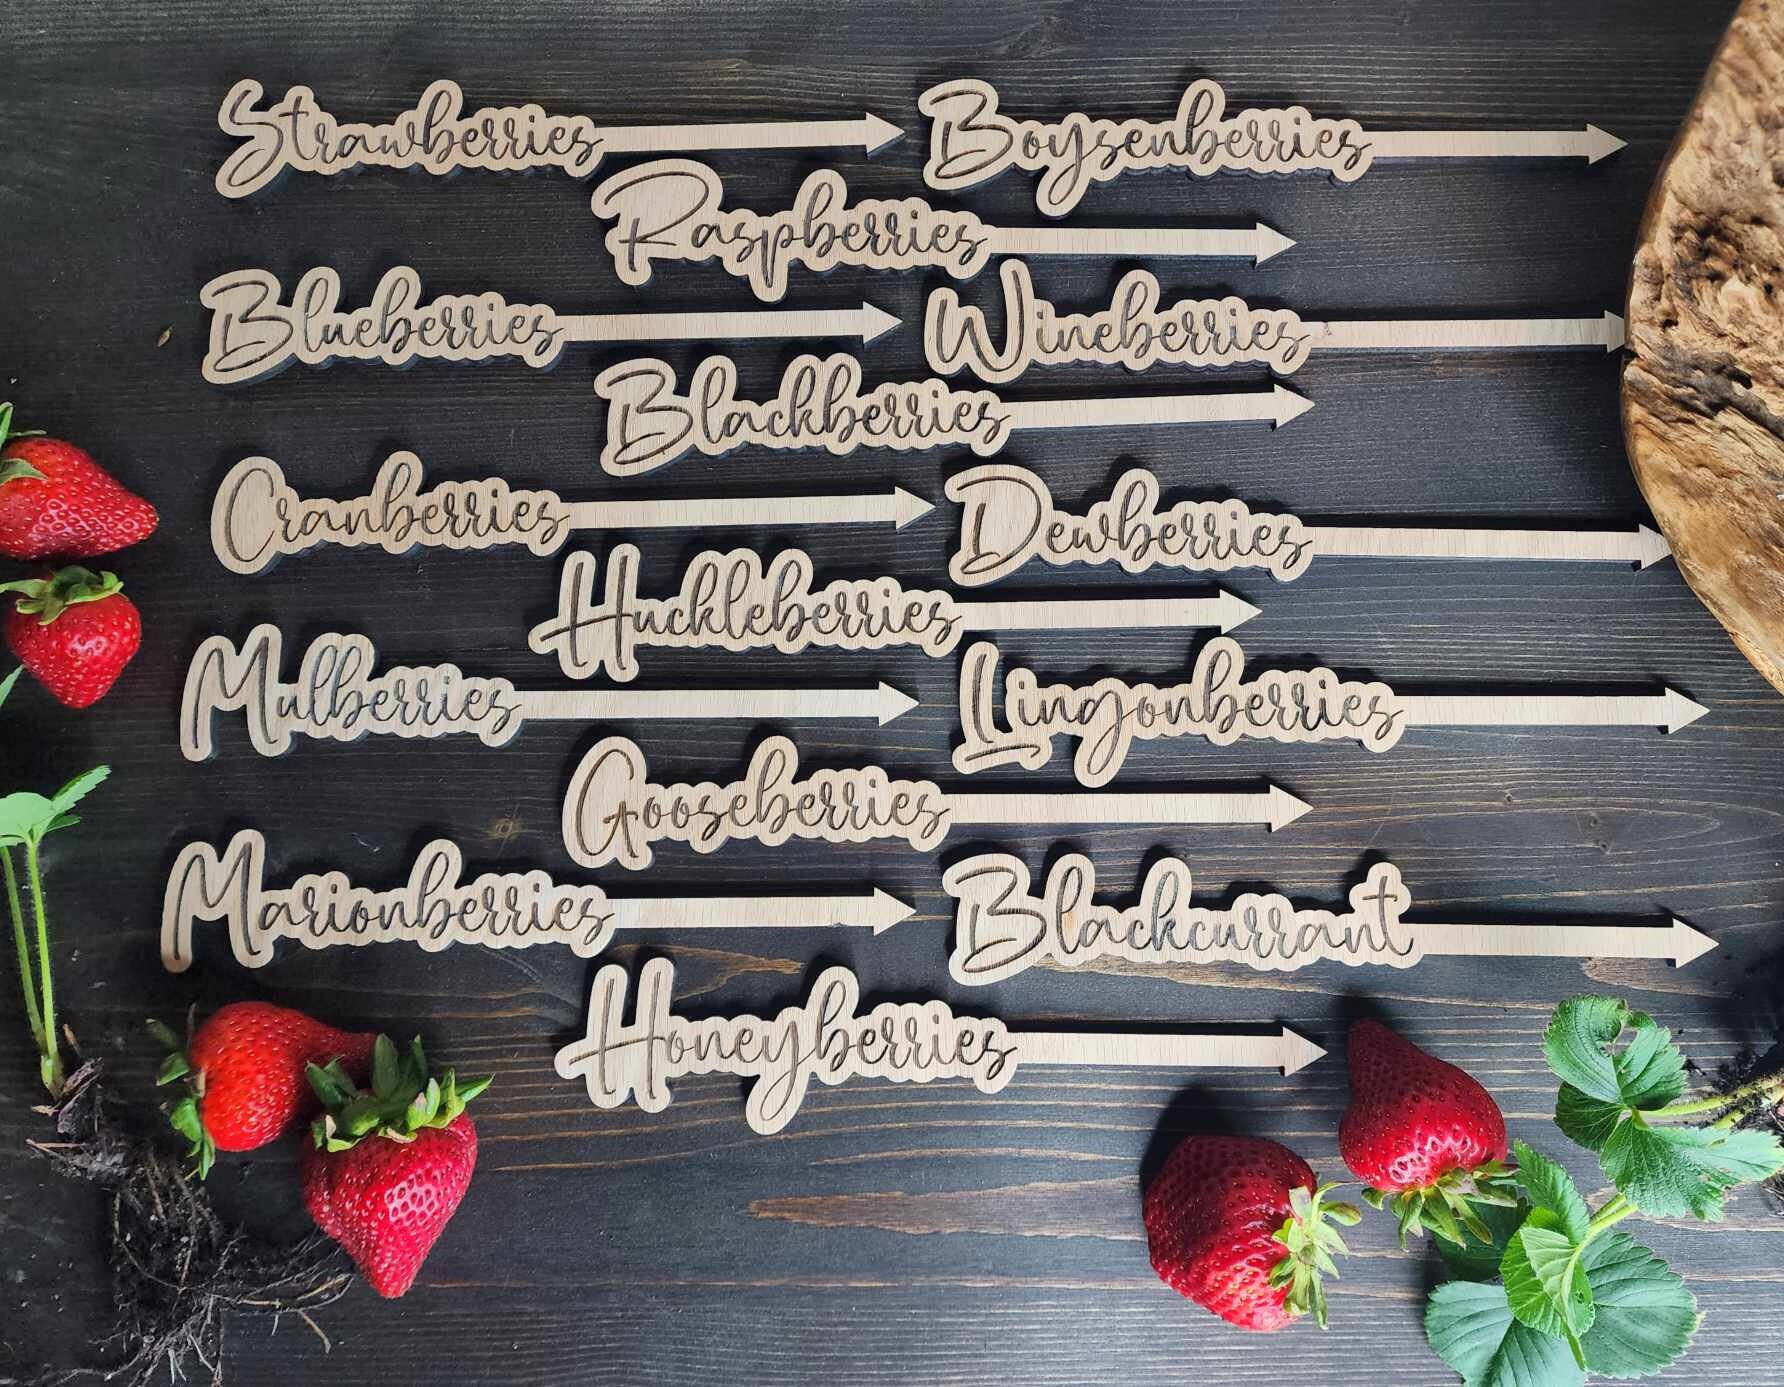 Strawberries
Boysenberries
Raspberries
Blueberries
Wineberries
Blackberries
Cranberries
Dewberries
Huckleberries
Mulberries
Lingonberries
Gooseberries
Marionberries
Blackcurrant
Honeyberries